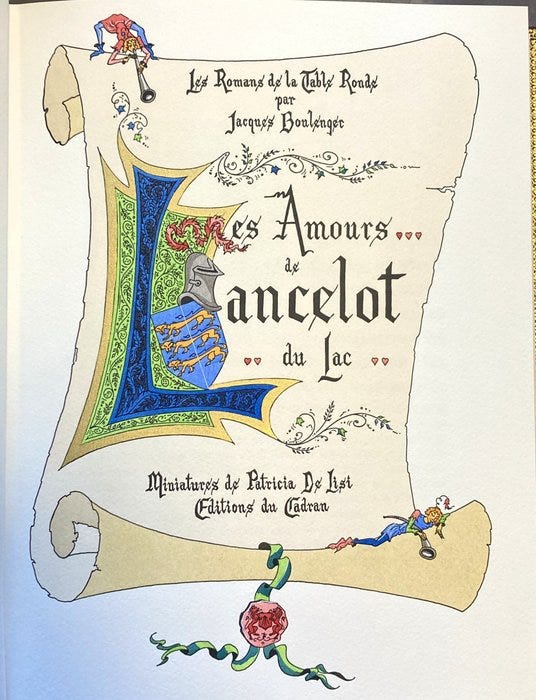 Les Romans de la Table Ronde
par
Jacques Boulenger
Les Amours...
de
Lancelot
du Lac
Miniatures de Patricia De Lisi
Editions du Cadran